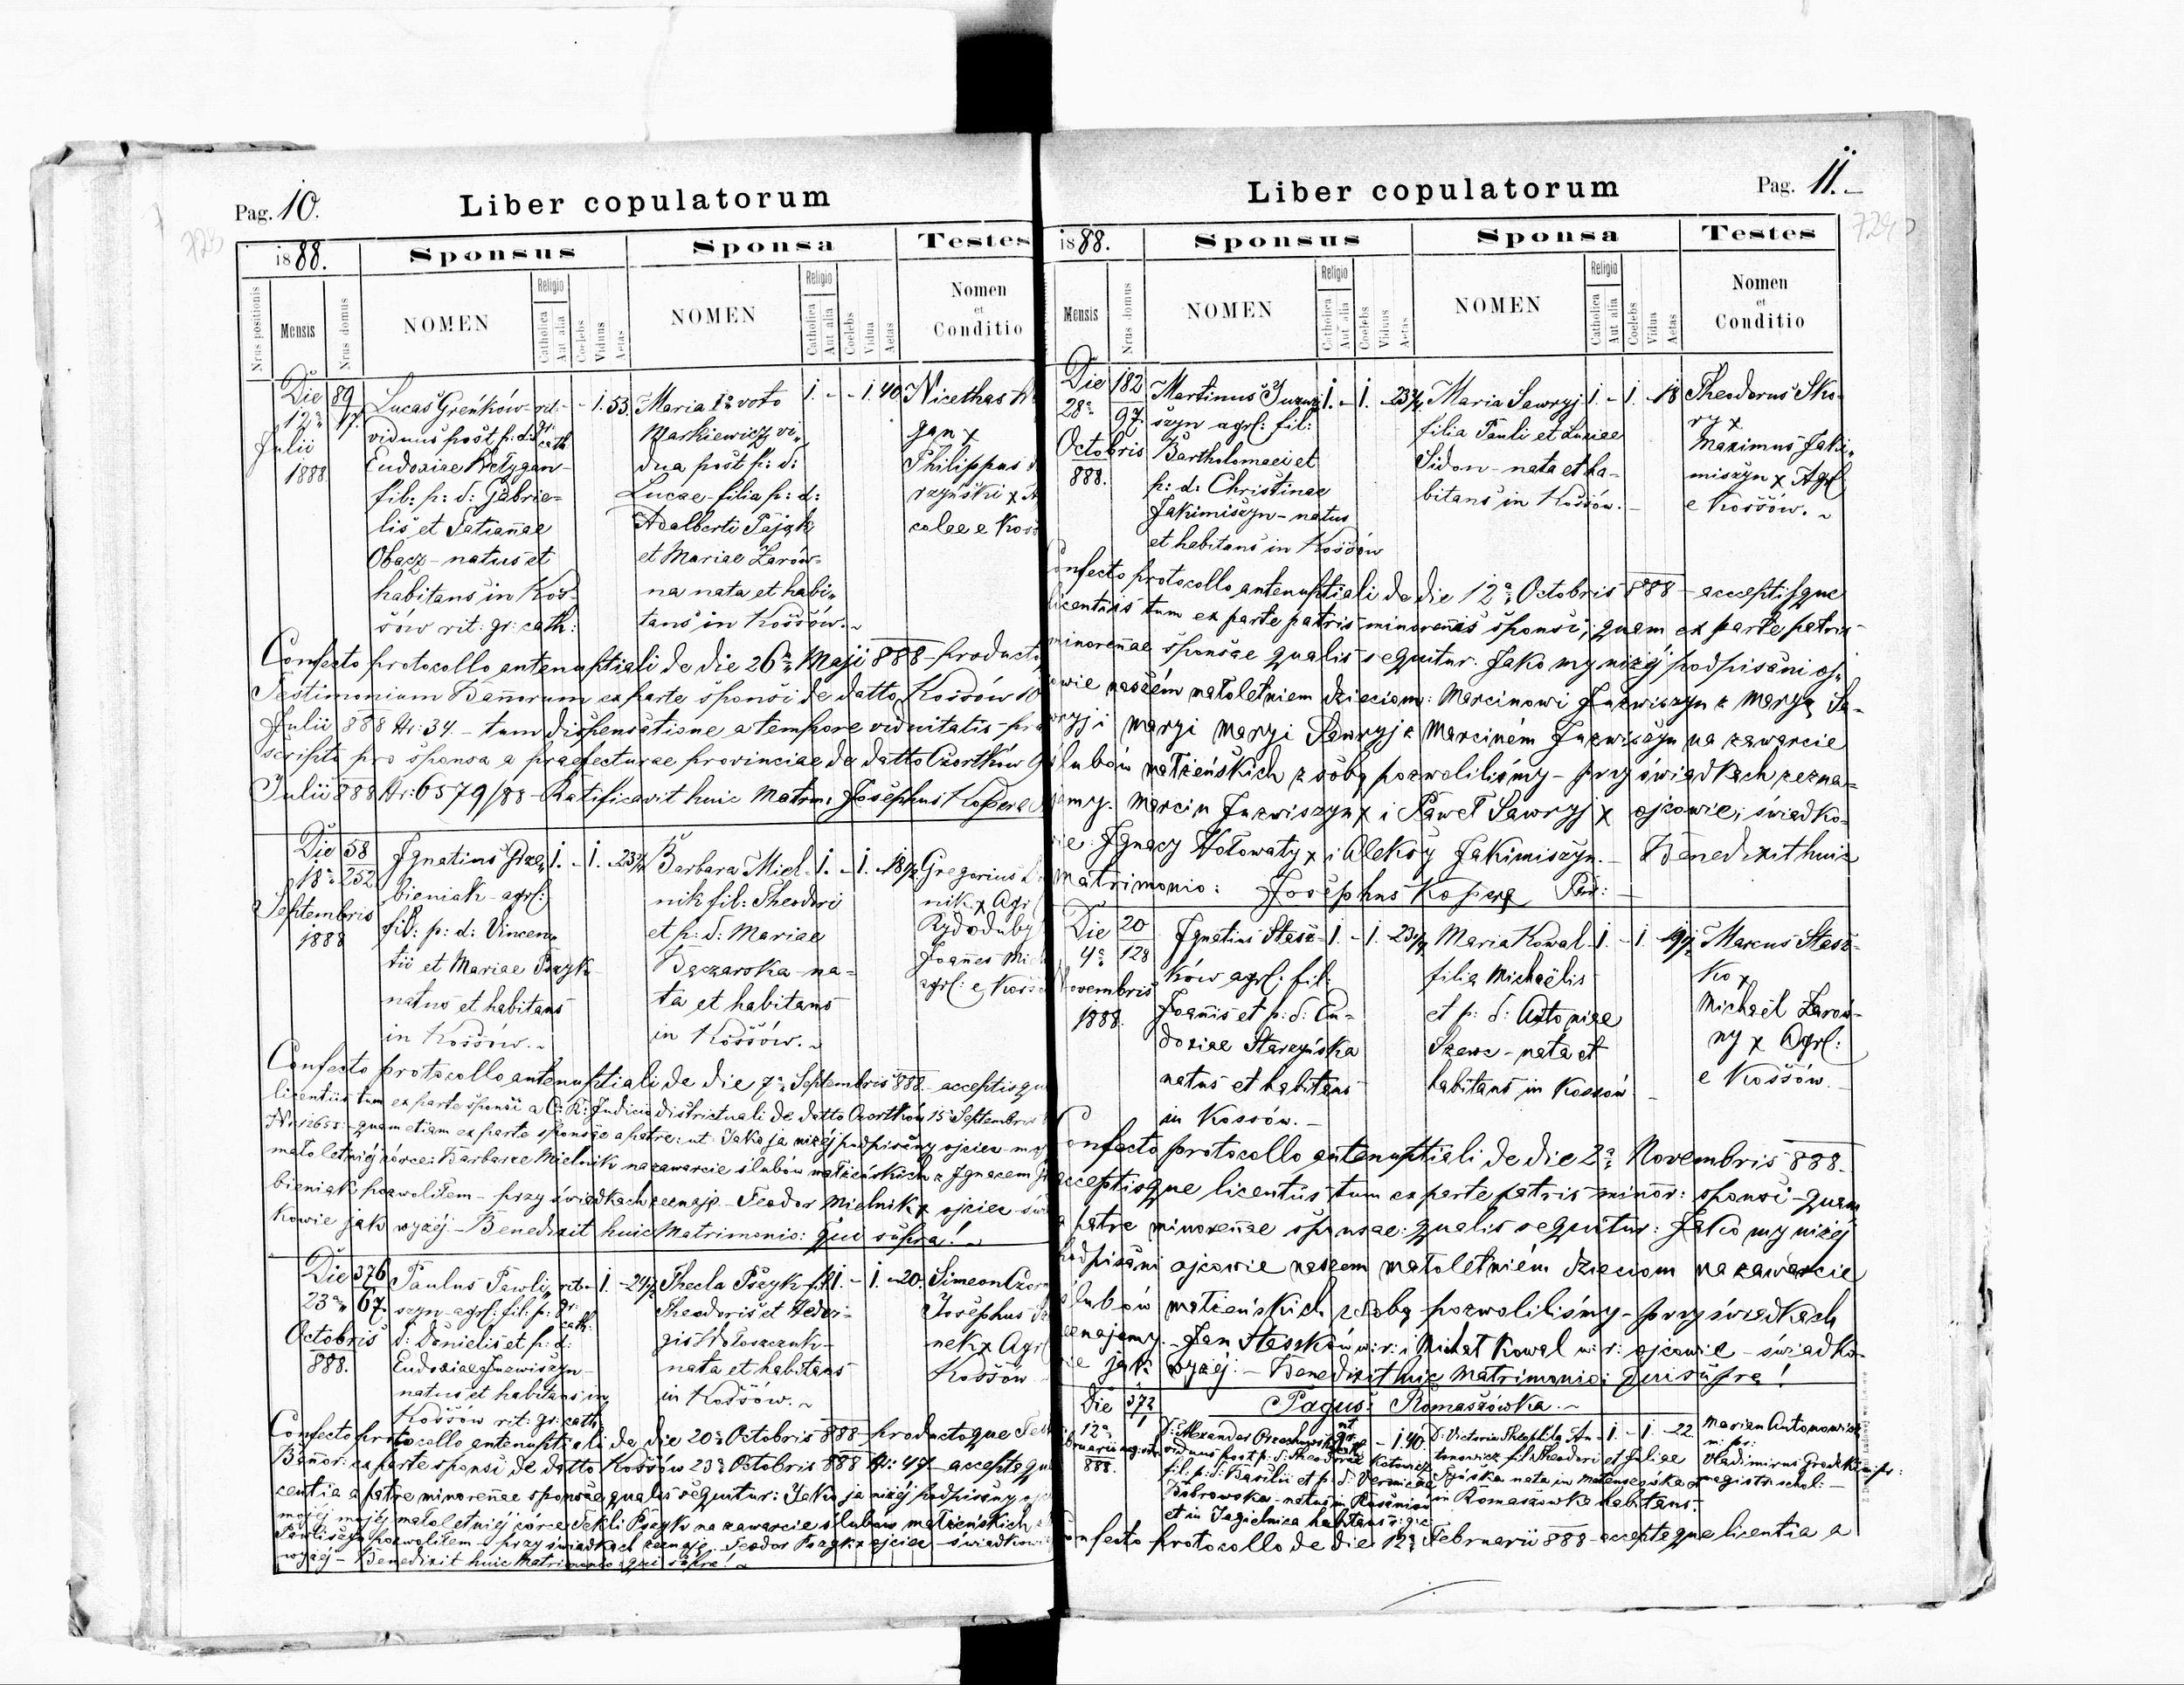 Pag. 10.
Liber copulatorum
1888.
Sponsus
Sponsa
Testes
Nrus positionis
Mensis
Nrus domus
NOMEN
Religio
Catholica
Aut alia
Coelebs
Viduus
Aetas
NOMEN
Religio
Catholica
Aut alia
Coelebs
Vidua
Aetas
Nomen
et
Conditio
Die
12a
Julii
1888
89
Lucas Greńków
viduus post p: d:
Eudoxiae Bełygan
fil: p: d: Gabrie=
lis et Tatianae
Obacz - natus et
habitans in Kos=
sów rit: gr: cath:
rit:
gr:
cath
- 1. 53.
Maria 1o voto
Markiewicz vi=
dua post p: d:
Lucae - filia p: d:
Adalberti Pająk
et Mariae Zarów=
na nata et habi=
tans in Kossów.
1. - - 1. 40
Nicethas
gan x
Philippus
rzyński x
colae e Koss
Confecto protocollo antenuptiali de die 26a Maji 888 - producto
Testimonium Bannorum ex parte sponsi de datto Kossów 10
Julii 888 Nr: 34. - tum dispensatione a tempore viduitatis
scripto pro sponsa a praefecturae provinciae de datto Czortków 9
Julii 888 Nr: 6579/88 - Ratificavit huic Matrm: Josephus Kopera
Die
18a
Septembris
1888
58
252
Ignatius Grze=
bieniak - agrl:
fil: p: d: Vincen=
tii et Mariae Pszyk
natus et habitans
in Kossów.
1. - 1. - 23
Barbara Miel
nik fil: Theodori
et p: d: Mariae
Bączarska - na=
ta et habitans
in Kossów.
1. - 1. - 18
Gregorius
nik x Agr
Rydoduby
Joannes Mi
agrl: e Koss
Confecto protocollo antenuptiali de die 7a Septembris 888 - acceptisqu
licentiis tum ex parte sponsi a C: K: Judicio districtuali de datto Czortków 15 Septembris
Nr: 12655 - quam etiam ex parte sponsae a patre: ut: Jako ja niżéj podpisany ojciec
małoletniéj córce: Barbarze Mielnik na zawarcie ślubów małżeńskich z Ignacem
bieniak pozwoliłem - przy świadkach zeznaję - Teodor Mielnik x ojciec
kowie jak wyżéj - Benedixit huic Matrimonio: qui supra!
Die
23a
Octobris
888.
376
67.
Paulus Pawli=
szyn - agrl: fil: p:
d: Danielis et p: d:
Eudoxiae Juzwiszyn
natus et habitans in
Kossów rit: gr: cath:
rit:
gr:
cath:
Thecla Pszyk fil
Theodoris et Hedvi=
gis Wołoszczuk
nata et habitans
in Kossów.
1. - 1. - 20.
Simeon
Josephus
nek x Agr
Kossów
Confecto protocollo antenuptiali de die 20a Octobris 888 - productoque
Bannor: ex parte sponsi de datto Kossów 23a Octobris 888 Nr: 47 - accepta
centia a patre minorennae sponsae qualis sequitur: Jako ja niżéj podpisany
mojéj małoletniéj córce Tekli Pszyk na zawarcie ślubów małżeńskich
Pawliszyn pozwoliłem - przy świadkach zeznaję - Teodor Pszyk x ojciec - świadkow
wyżéj - Benedixit huic Matrimonio: qui supra!
Liber copulatorum
Pag. 11.
1888.
Sponsus
Sponsa
Testes
Mensis
Nrus domus
NOMEN
Religio
Catholica
Aut alia
Coelebs
Viduus
Aetas
NOMEN
Religio
Catholica
Aut alia
Coelebs
Vidua
Aetas
Nomen
et
Conditio
Die
28a
Octobris
888.
182
97.
Martinus Juzwi
szyn agrl: fil:
Bartholomaei et
p: d: Christinae
Jakimiszyn - natus
et habitans in Kossów
1. - 1. - 23
Maria Sawryj
filia Pauli et Luciae
Sidon - nata et ha=
bitans in Kossów.
1. - 1. - 18
Theodorus Sko=
ry x
Maximus Jaki=
miszyn x Agrl
e Kossów.
onfecto protocollo antenuptiali de die 12a Octobris 888 - acceptisque
licentiis tum ex parte patris minorennis sponsi, quam ex parte patris
minorennae sponsae qualis sequitur. Jako my niżéj podpisani oj=
owie naszém małoletniem dzieciom: Marcinowi Juzwiszyn z Maryą Sa=
wryj i Maryi Maryi Sawryj z Marciném Juzwiszyn na zawarcie
ślubów małżeńskich z sobą pozwoliliśmy - przy świadkach zezna=
jemy. Marcin Juzwiszyn x i Paweł Sawryj x ojcowie, świadko=
ie: Ignacy Hołowaty x i Aleksy Jakimiszyn. - Benedixit huic
Matrimonio: Josephus Kopera
Die
4a
Novembris
1888.
20
128
Ignatius Stasz=
ków agrl: fil:
Joannis et p: d: Eu=
doxiae Starzyńska
natus et habitans
in Kossów.
1. - 1. - 23
Maria Kowal
filia Michaëlis
et p: d: Antoniae
Szewc - nata et
habitans in Kossów
1. - 1. - 19
Marcus Stasz=
ko x
Michaël Zarów=
ny x Agrl:
e Kossów.
onfecto protocollo antenuptiali de die 2a Novembris 888.
acceptisque licentiis tum ex parte patris minor: sponsi - quam
a patre minorennae sponsae: qualis sequitur: Jako my niżéj
podpisani ojcowie naszem małoletniém dzieciom na zawarcie
ślubów małżeńskich z sobą pozwoliliśmy - przy świadkach
zeznajemy. Jan Staszków w: r: i Michał Kowal w: r: ojcowie - świadko=
ie jak wyżéj: - Benedixit huic Matrimonio: Qui supra!
Pagus: Romaszówka.
Die
12a
bruarii
888.
372
viduus post p: d: Theodorae
fil: p: d: Basilii et p: d:
Bobrowska - natus in
et in Jagielnica habitans
- 1. 40.
D: Victoria Theophila An=
tonowicz fil: Theodori et Juliae
in Romaszówka habitans:
1. - 1. - 22.
Marian Antonowicz
Vladimirus
magistr: schol:
onfecto protocollo de die 12a Februarii 888 - acceptaque licentia a